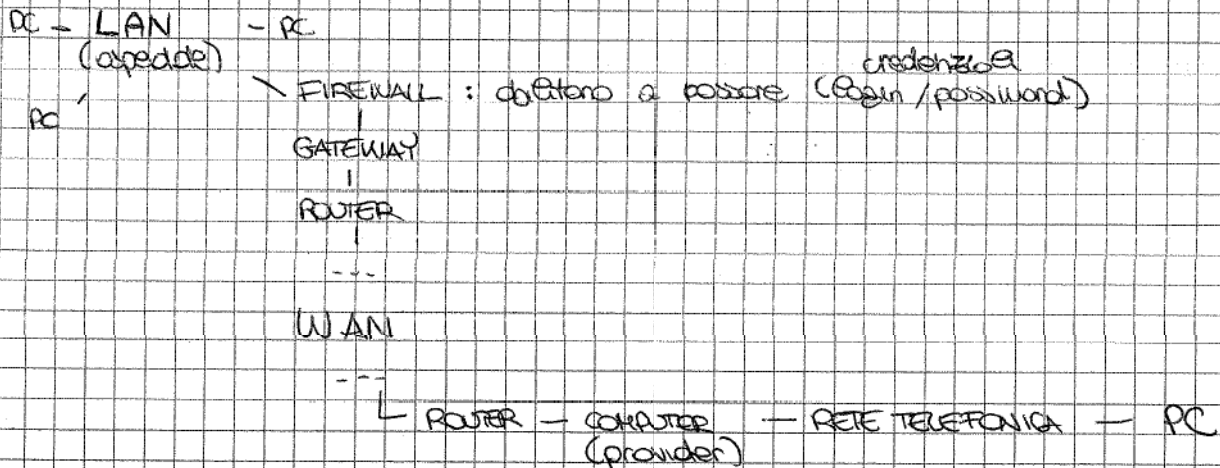 PC - LAN - PC
(ospedale)
credenziali
FIREWALL : a passare (login / password)
PC
GATEWAY
ROUTER
---
WAN
---
ROUTER - COMPUTER - RETE TELEFONICA - PC
(provider)